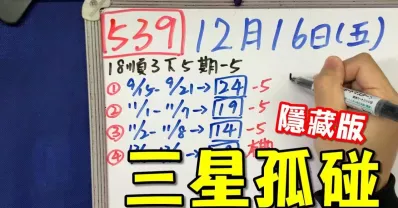 539 12月16日(五)
18順3下5期-5
① 9/15-9/21→24-5
② 11/1-11/7→19-5
③ 11/2-11/8→14-5
④
隱藏版
三星孤碰